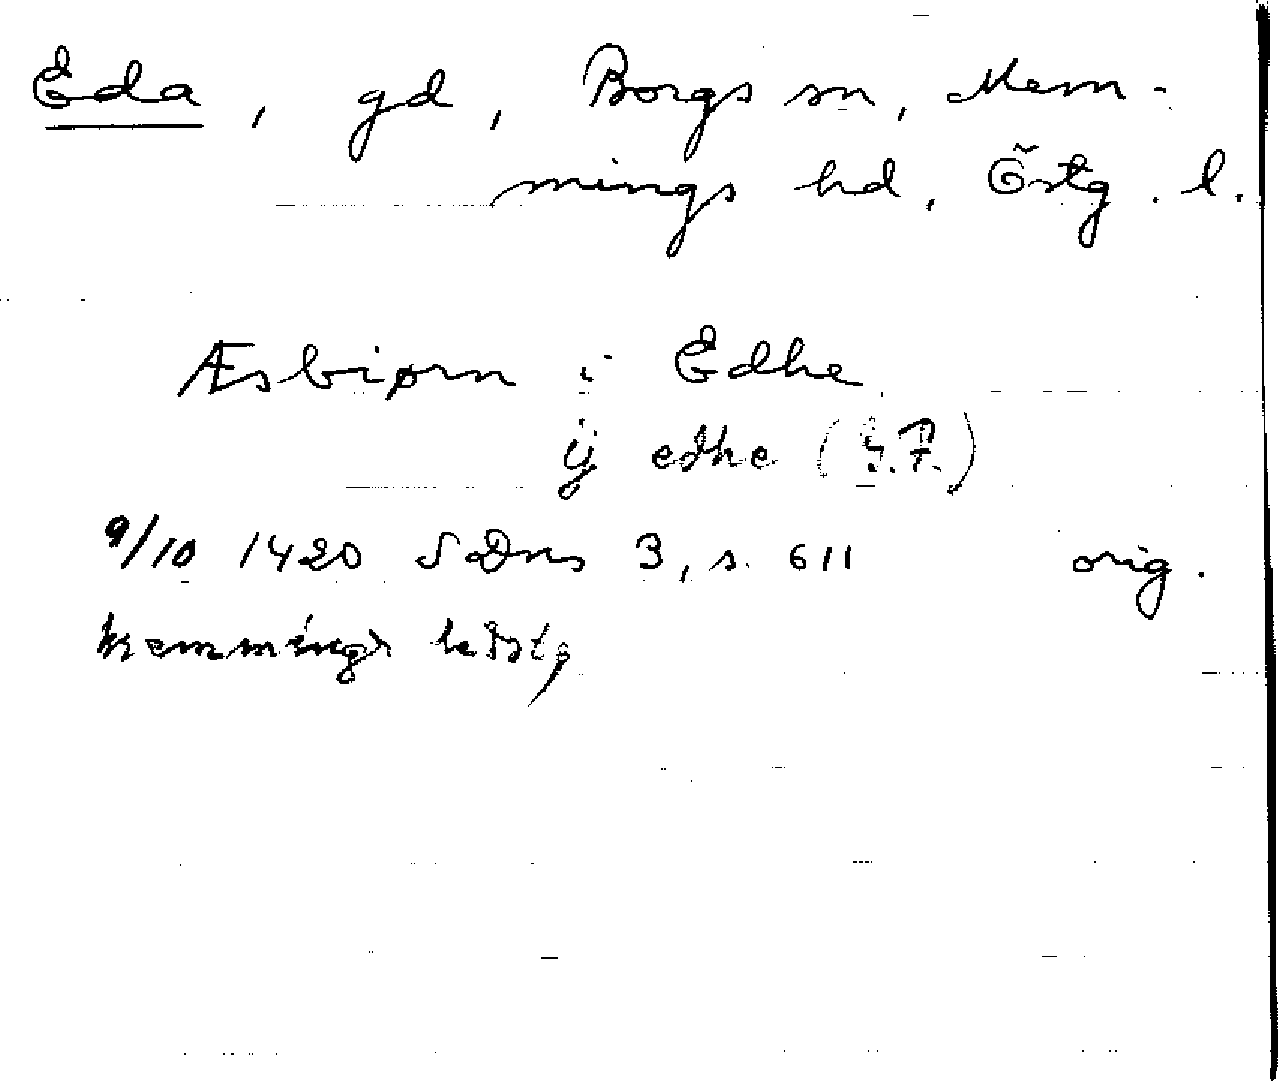 Eda, gd, Borgs sn, Mem-
mings hd, Östg. l.
Æsbiørn i Edhe
ij edhe
9/10 1420 SDns 3, s. 611 orig.